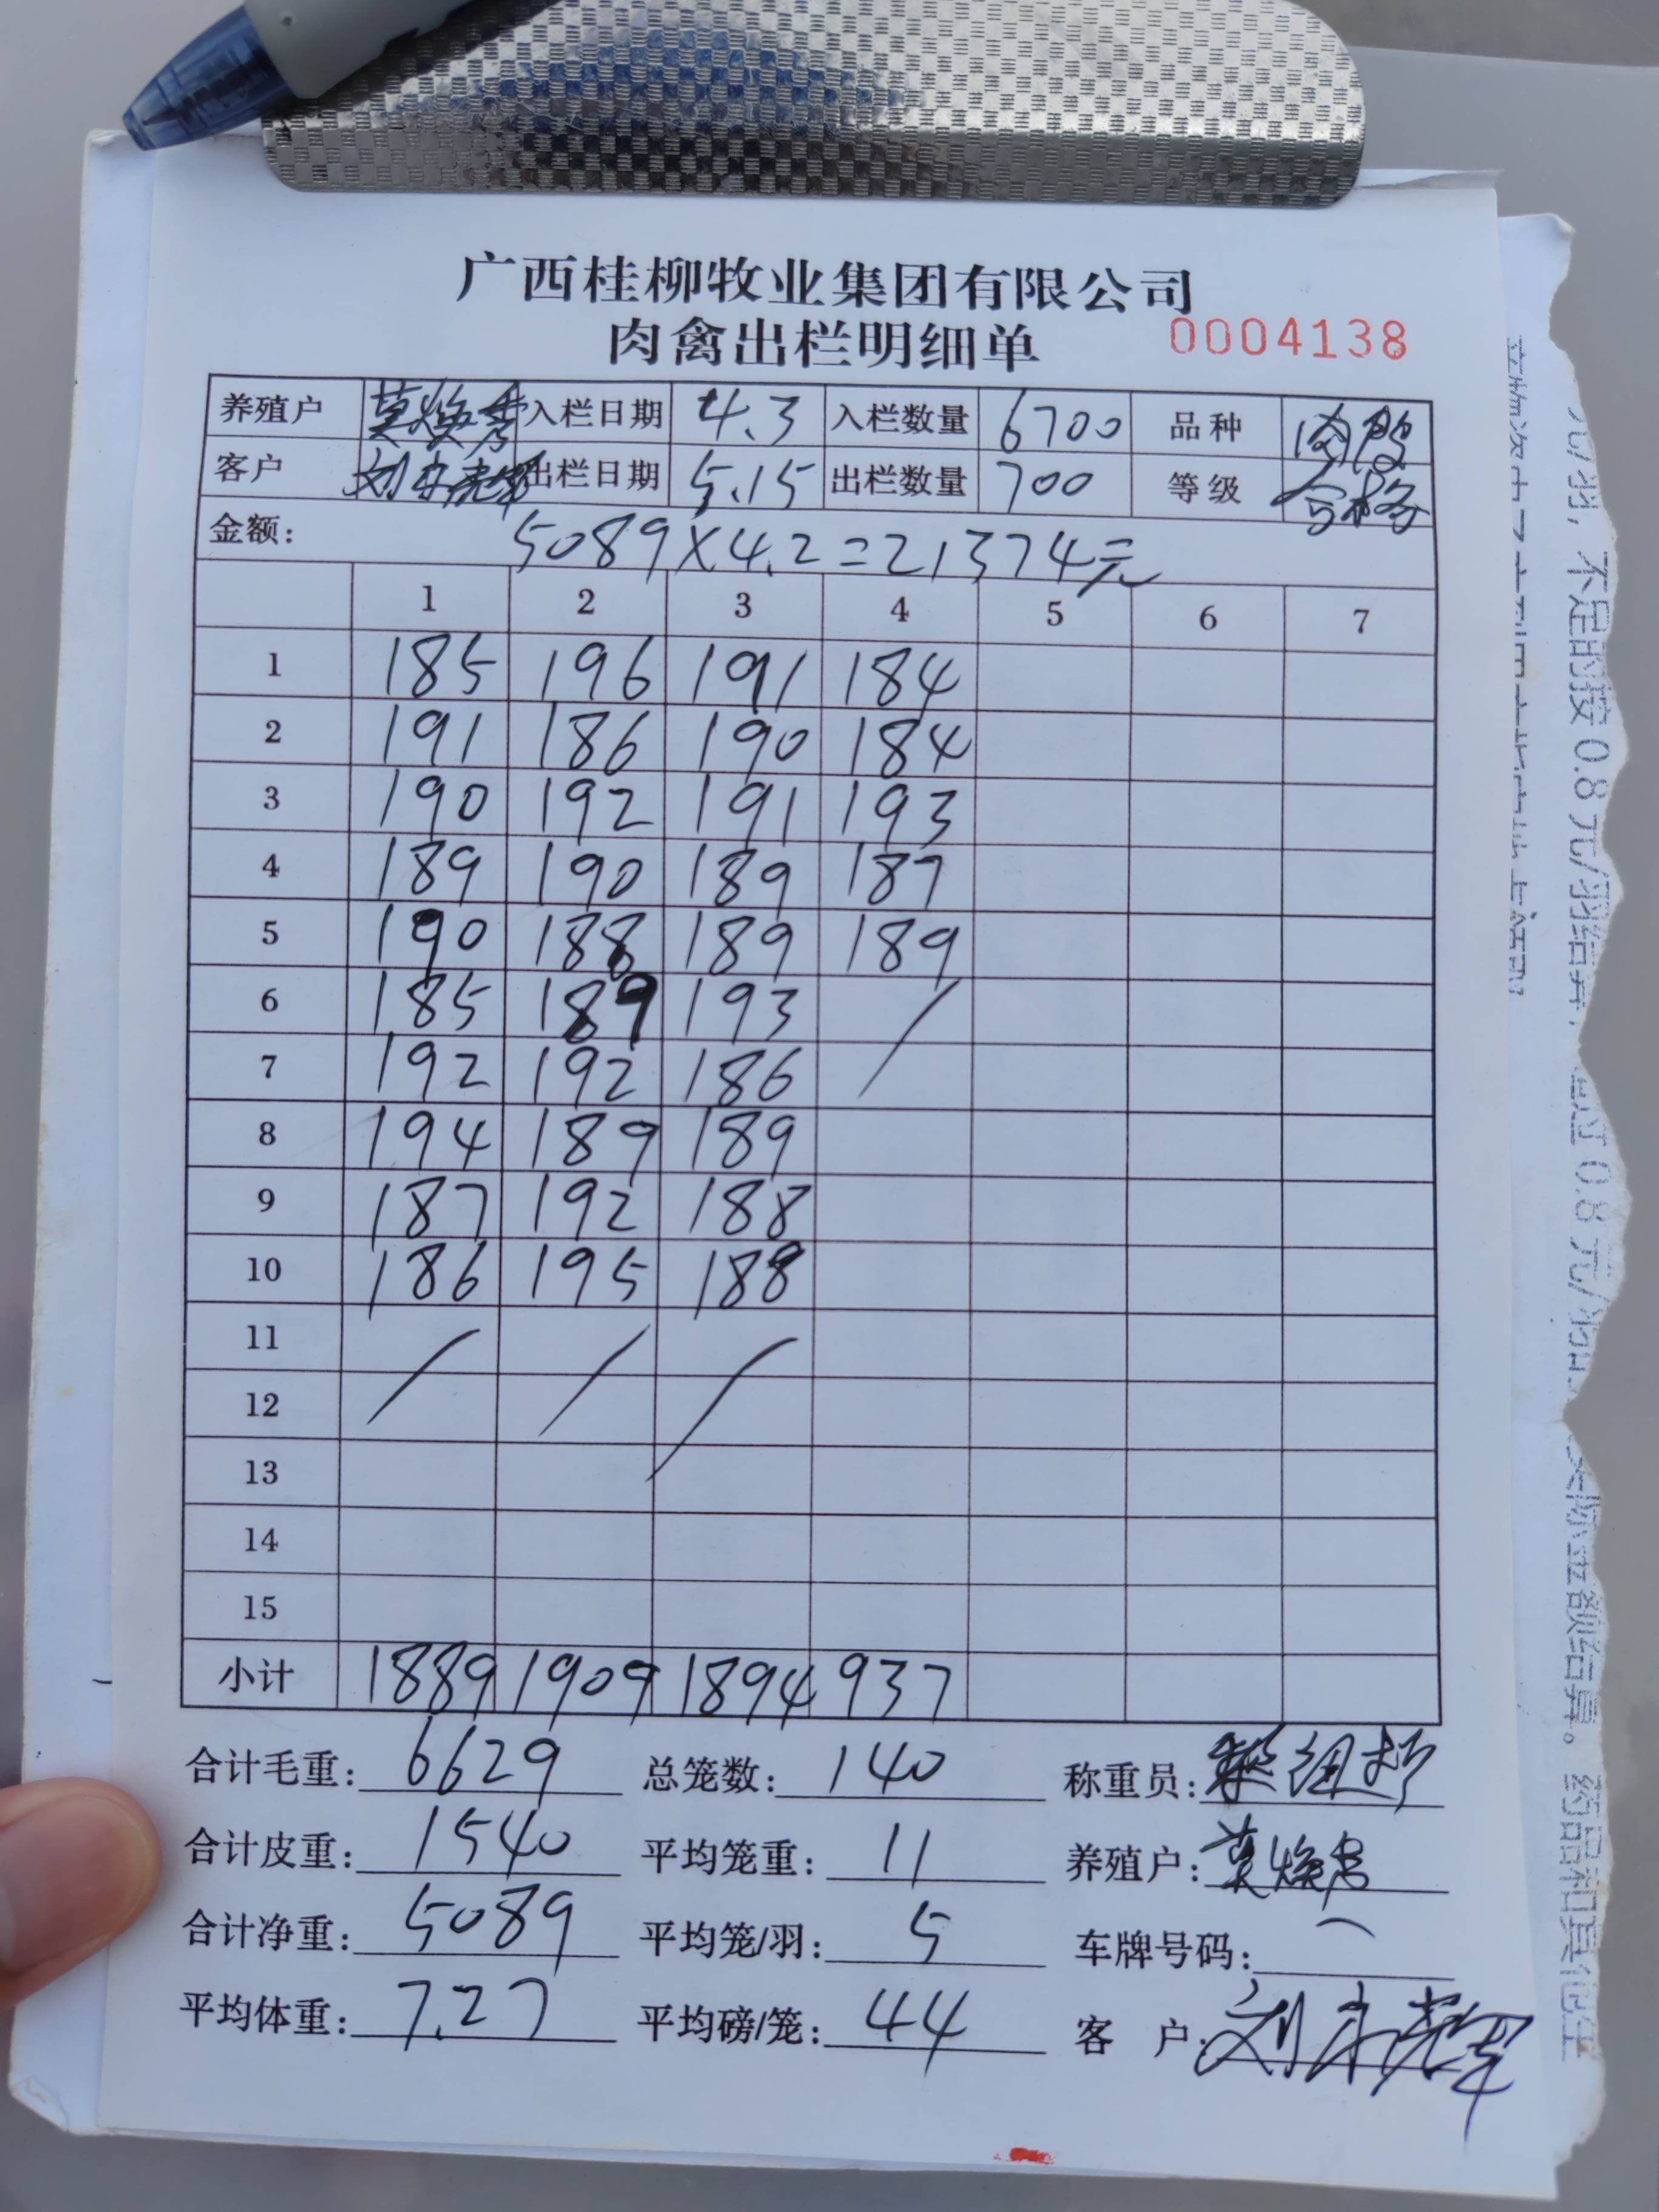 广西桂柳牧业集团有限公司
肉禽出栏明细单 0004138
养殖户 莫焕秀 入栏日期 4.3 入栏数量 6700 品种 肉鸭
客户 刘 出栏日期 5.15 出栏数量 700 等级 合格
金额: 5089×4.2=21374元
1 2 3 4 5 6 7
1 185 196 191 184
2 191 186 190 184
3 190 192 191 193
4 189 190 189 187
5 190 188 189 189
6 185 189 193
7 192 192 186
8 194 189 189
9 187 192 188
10 186 195 188
11
12
13
14
15
小计 1889 1909 1894 937
合计毛重: 6629 总笼数: 140 称重员:
合计皮重: 1540 平均笼重: 11 养殖户: 莫焕秀
合计净重: 5089 平均笼/羽: 5 车牌号码:
平均体重: 7.27 平均磅/笼: 44 客 户: 刘
元/羽, 不足的按 0.8 元/羽结算
超过 0.8 元/羽
实际金额结算。药品和其他